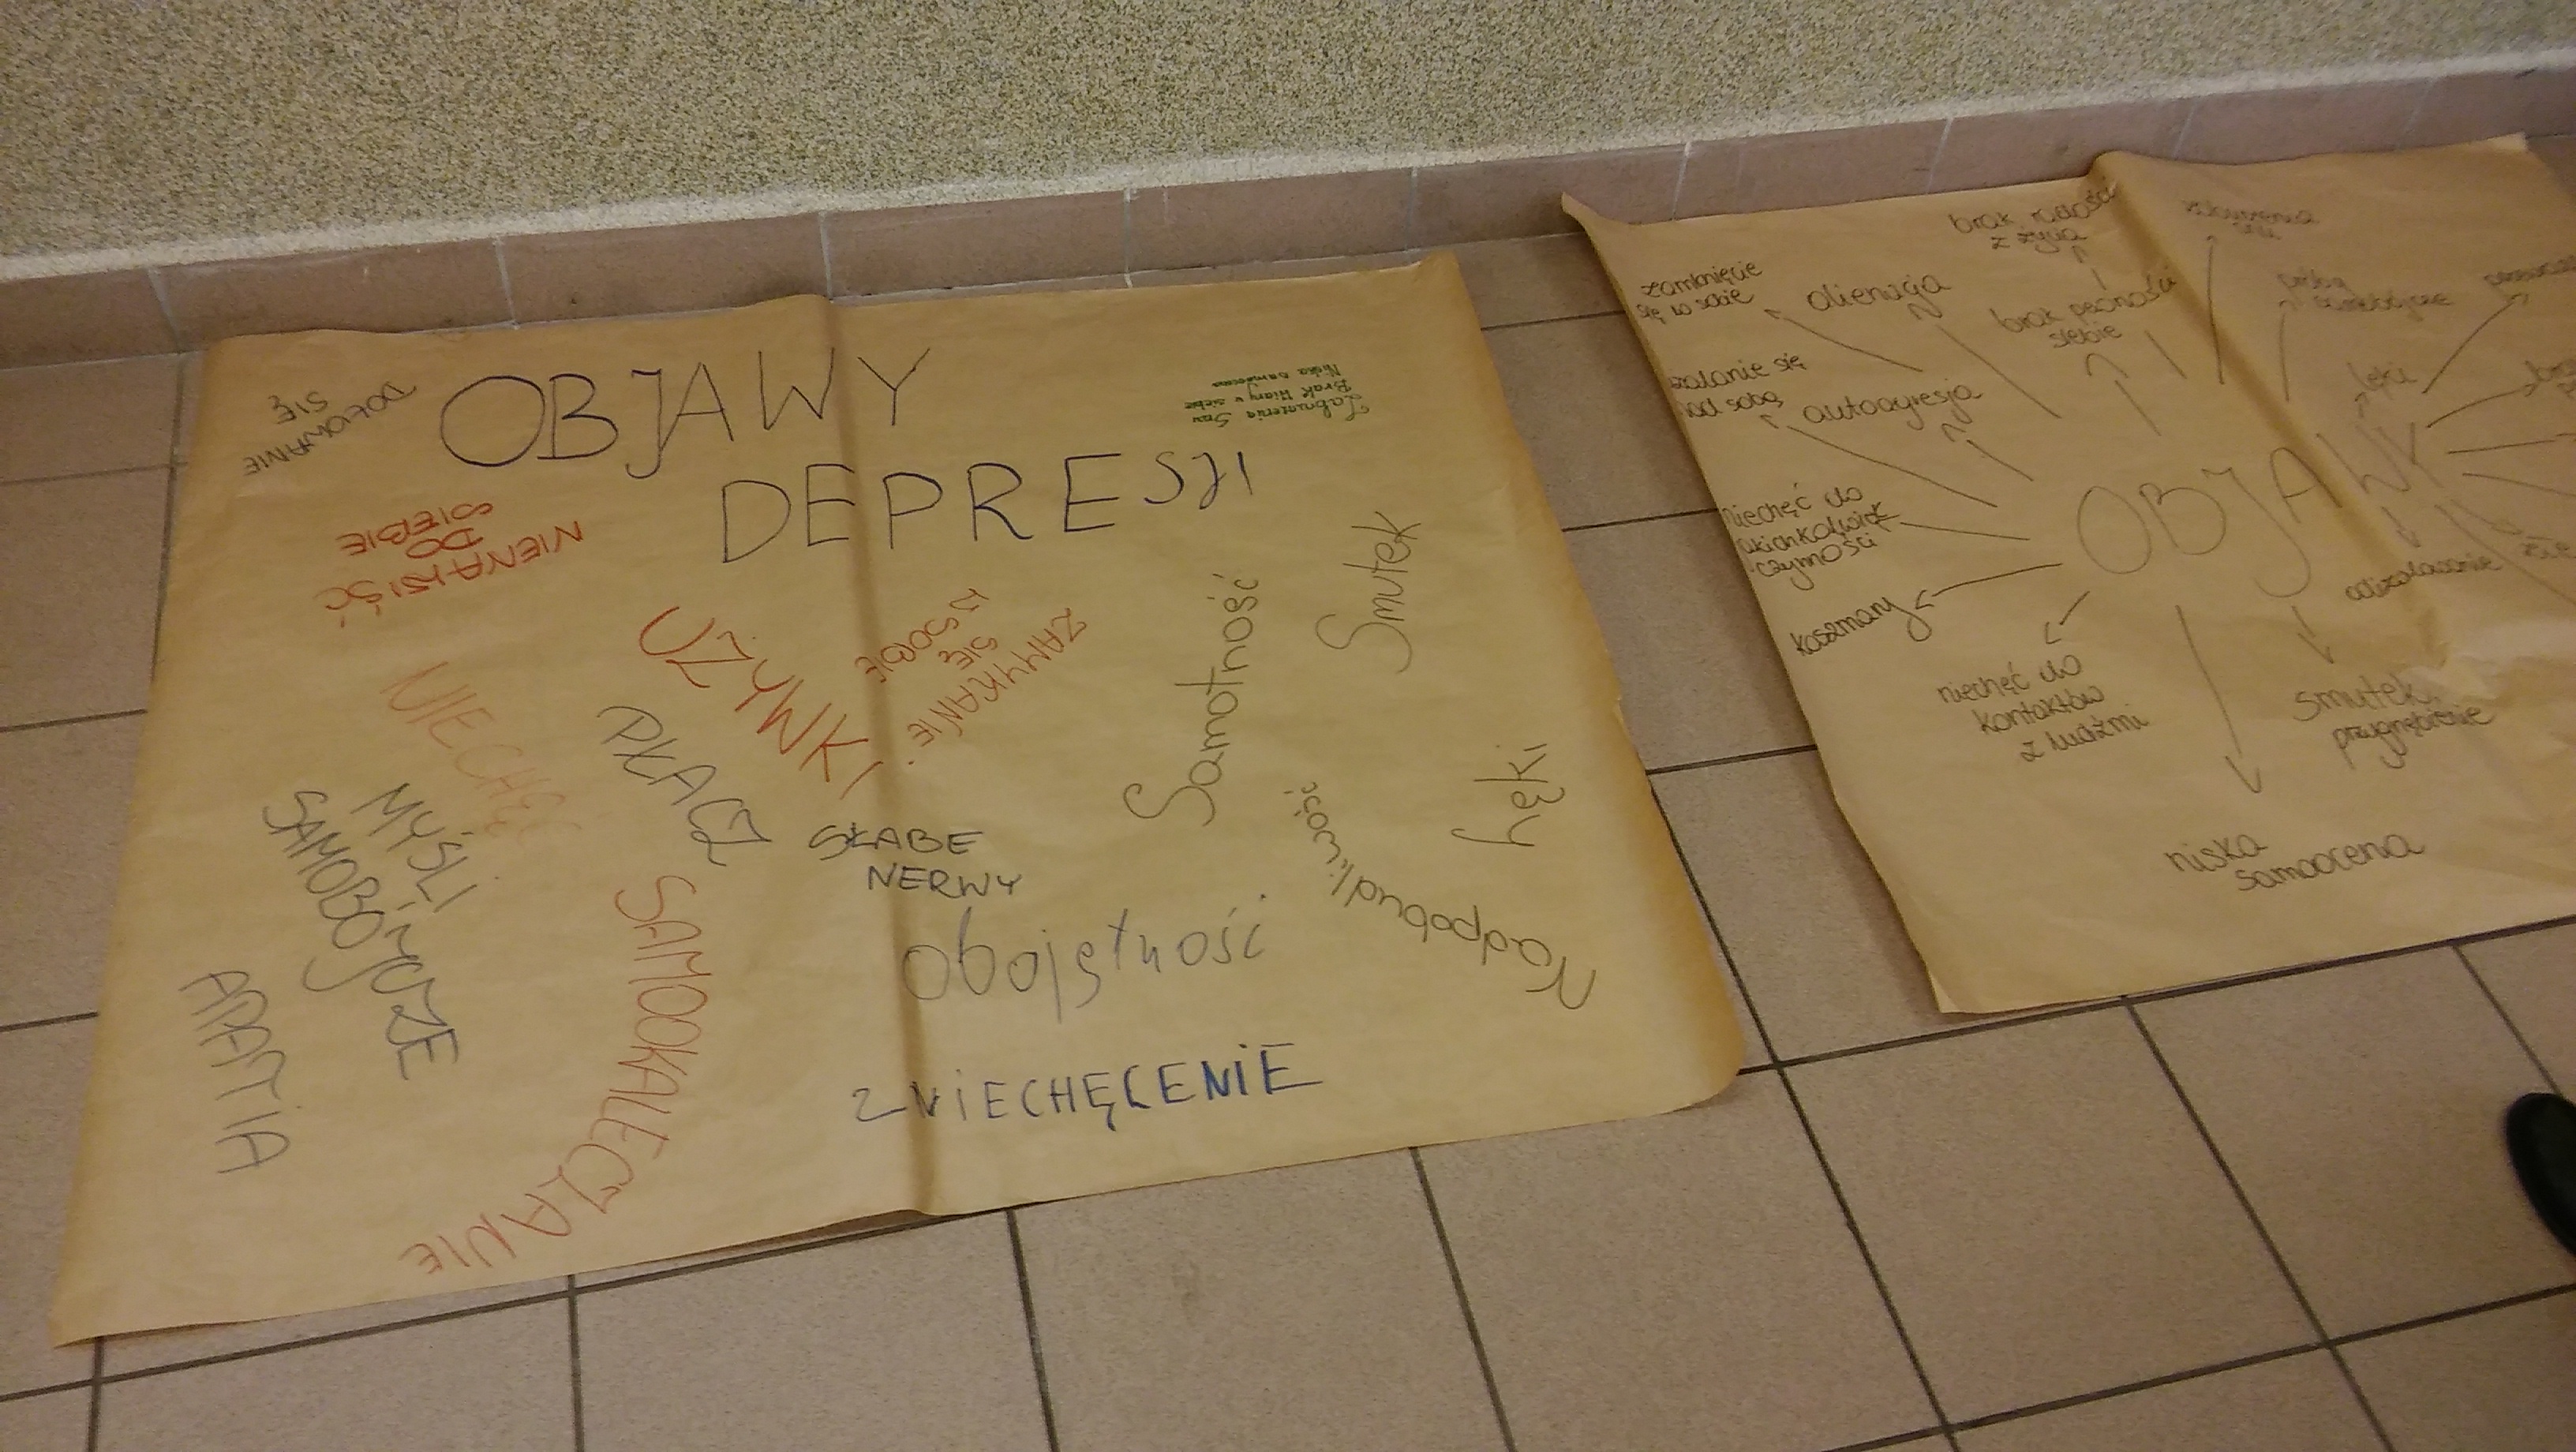 OBJAWY
DEPRESJI
DOŁOWANIE
SIĘ
Zaburzenia Snu
Brak Wiary w siebie
Niska samoocena
NIENAWIŚĆ
DO
SIEBIE
UŻYWKI
ZAMYKANIE
SIĘ
W SOBIE
Samotność
Smutek
NIECHĘĆ
PŁACZ
MYŚLI
SAMOBÓJCZE
SŁABE
NERWY
Lęki
Nadpobudliwość
SAMOOKALECZANIE
Obojętność
APATIA
ZNIECHĘCENIE
OBJAWY
brak radości
z życia
zamknięcie
się w sobie
alienacja
brak pewności
siebie
użalanie się
nad sobą
autoagresja
lęki
niechęć do
jakichkolwiek
czynności
koszmary
niechęć do
kontaktów
z ludźmi
smutek,
przygnębienie
niska
samoocena